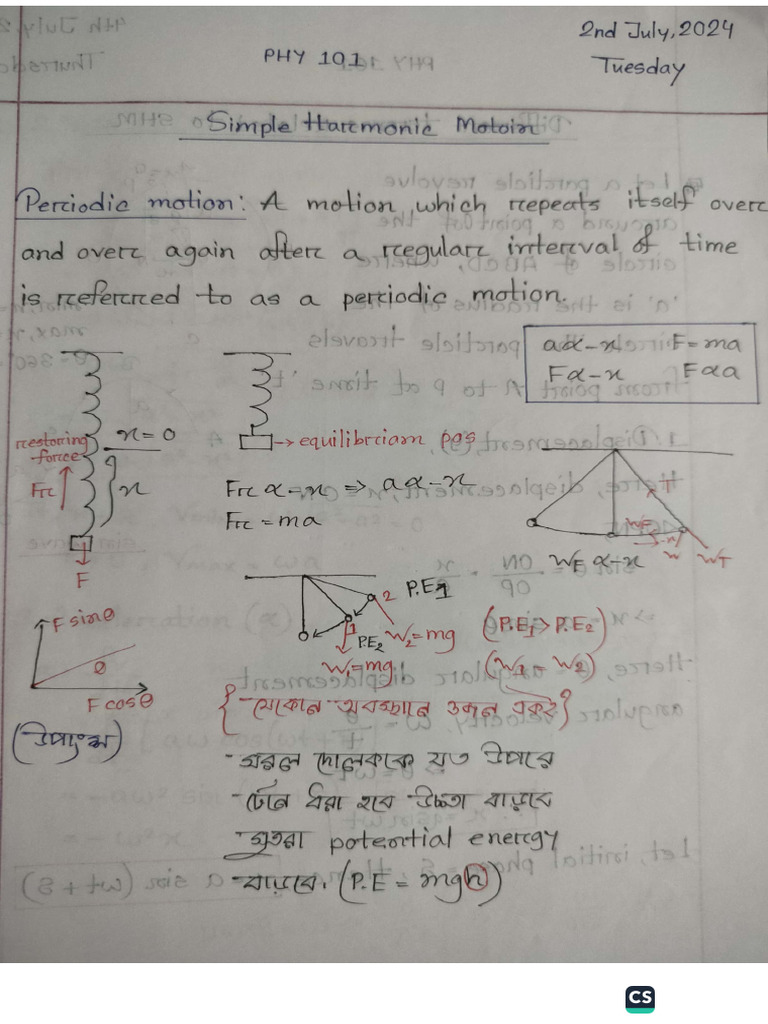 2nd July, 2024
PHY 101
Tuesday
Simple Harmonic Motoin
Periodic motion: A motion, which repeats itself over
and over again after a regular interval of time
is referred to as a periodic motion.
a α -x F = ma
F α -x F α a
restoring
force
x = 0
→ equilibriam pos
Fr
x
F
Fr α -x ⇒ a α -x
Fr = ma
WT
WE α -x
F sinθ
θ
F cosθ
(উপাংশ)
2 P.E1
1 P.E2
W2 = mg
W1 = mg
(P.E1 > P.E2)
(W1 = W2)
{যেকোন অবস্থানে ওজন একই}
সরল দোলককে যত উপরে
টেনে ধরা হবে উচ্চতা বাড়বে
সুতরা potential energy
বাড়বে। (P.E = mgh)
CS